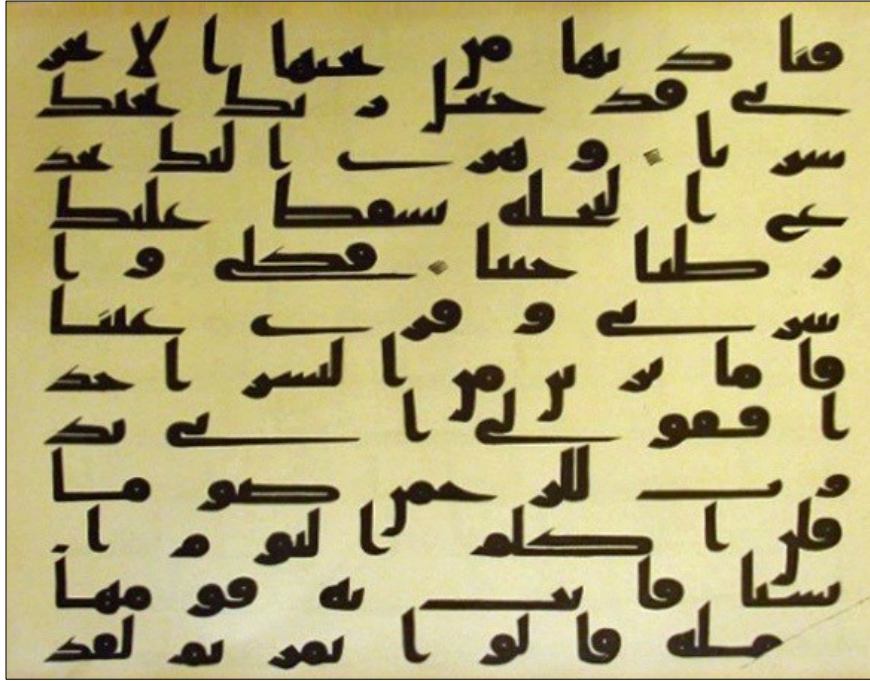 فناديها من تحتها الا تحز
ني قد جعل ربك تحتك
سريا وهزي اليك بجذ
ع النخلة تسقط عليك
رطبا جنيا فكلي وا
شربي وقري عينا
فاما ترين من البشر احد
ا فقولي اني نذ
رت للرحمن صوما
فلن اكلم اليوم ا
نسيا فاتت به قومها
تحمله قالوا يمريم لقد